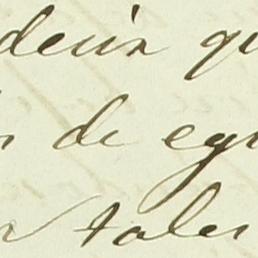 deux qu
de egy
tales